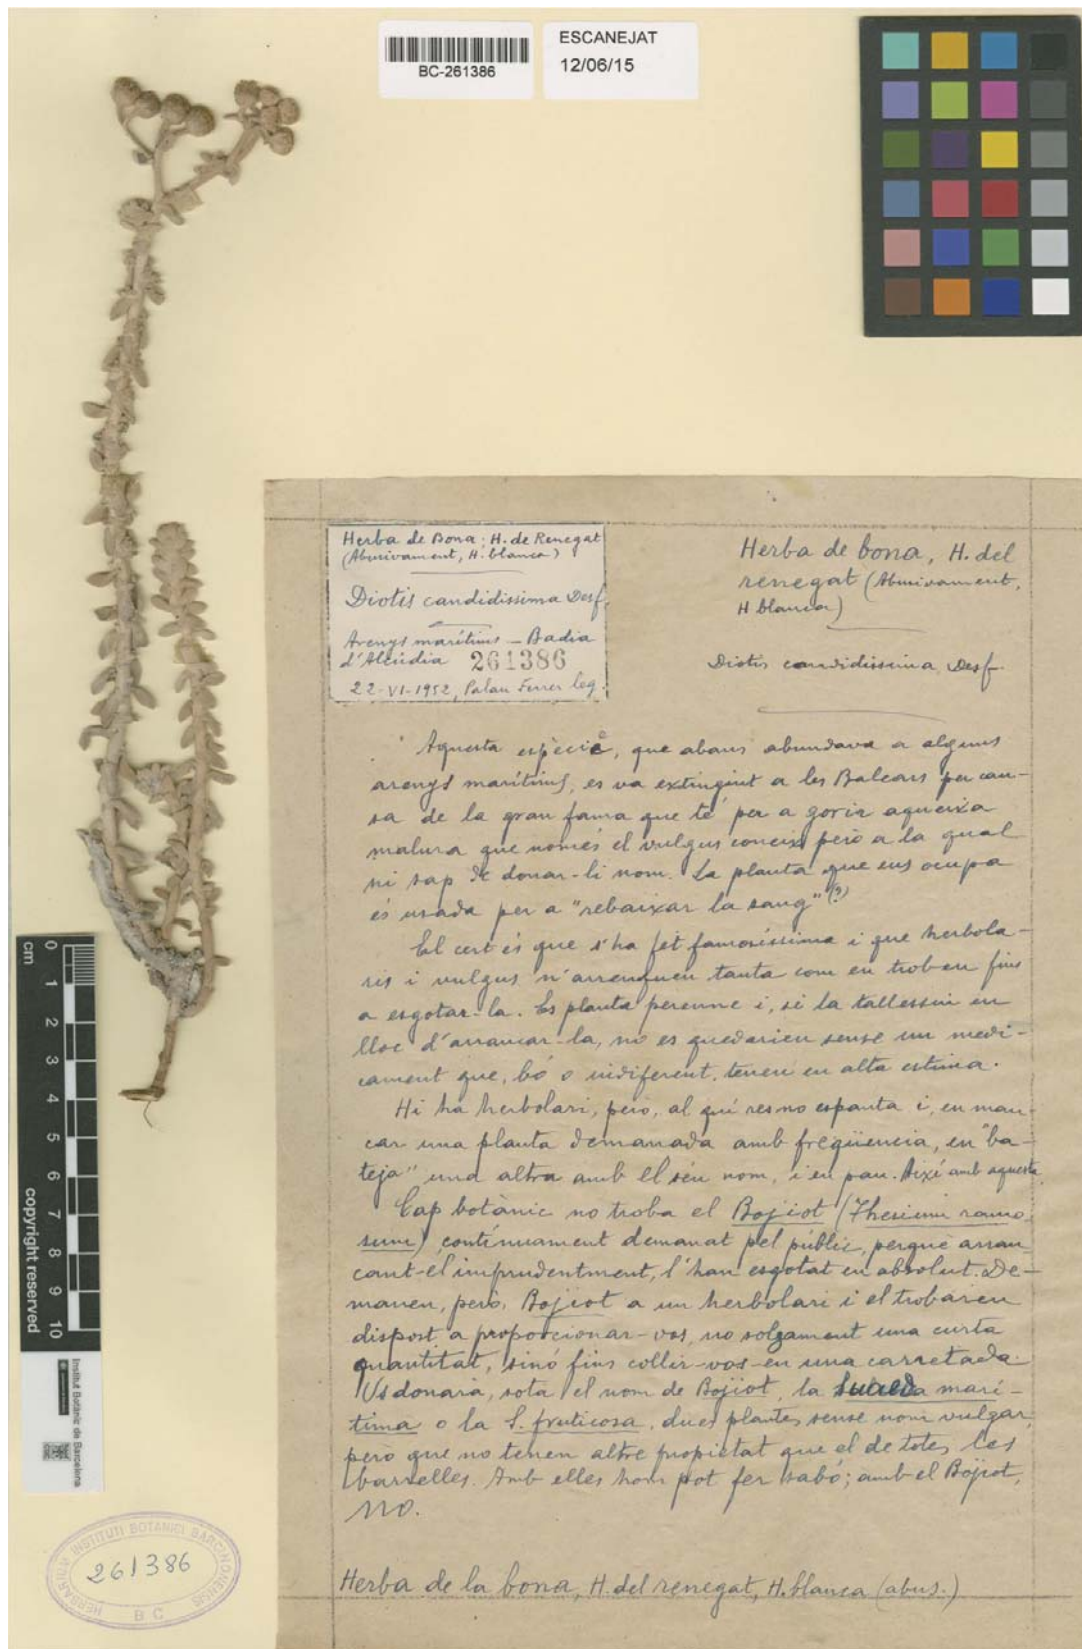 BC-261386
ESCANEJAT
12/06/15
Herba de Bona; H. de Renegat
(Abusivament, H. blanca)
Diotis candidissima Desf.
Arenys marítims – Badia
d'Alcúdia 261386
22-VI-1952, Palau Ferrer leg.
Herba de bona, H. del
renegat (Abusivament,
H blanca)
Diotis candidissima Desf.
Aquesta espècie, que abans abundava a alguns
arenys marítims, es va extingint a les Balears per cau-
sa de la gran fama que té per a gorir aqueixa
malura que només el vulgus coneix però a la qual
ni sap de donar-li nom. La planta que ens ocupa
és usada per a "rebaixar la sang" (?)
El cert és que s'ha fet famosíssima i que herbola-
ris i vulgus n'arrenquen tanta com en troben fins
a esgotar-la. Es planta perenne i, si la tallessin en
lloc d'arrancar-la, no es quedarien sense un medi-
cament que, bó o indiferent, tenen en alta estima.
Hi ha herbolari, però, al quí res no espanta i, en man-
car una planta demanada amb freqüencia, en "ba-
teja" una altra amb el séu nom, i en pau. Aixì amb aquesta.
Cap botànic no troba el Bojiot (Thesium ramo-
sum), contínuament demanat pel públic, perquè arran-
cant-el imprudentment, l'han esgotat en absolut. De-
maneu, però, Bojiot a un herbolari i el trobareu
dispost a proporcionar-vos, no solzament una curta
quantitat, sinó fins collir-vos-en una carretada.
Us donarà, sota el nom de Bojiot, la Suaeda marí-
tima o la S. fruticosa, dues plantes sense nom vulgar,
però que no tenen altre propietat que el de totes les
barrelles. Amb elles hom pot fer sabó; amb el Bojiot,
no.
Herba de la bona, H. del renegat, H. blanca (abus.)
0 1 2 3 4 5 6 7 8 9 10
cm
copyright reserved
Institut Botànic de Barcelona
HERBARIUM INSTITUTI BOTANICI BARCINONENSIS
261386
BC